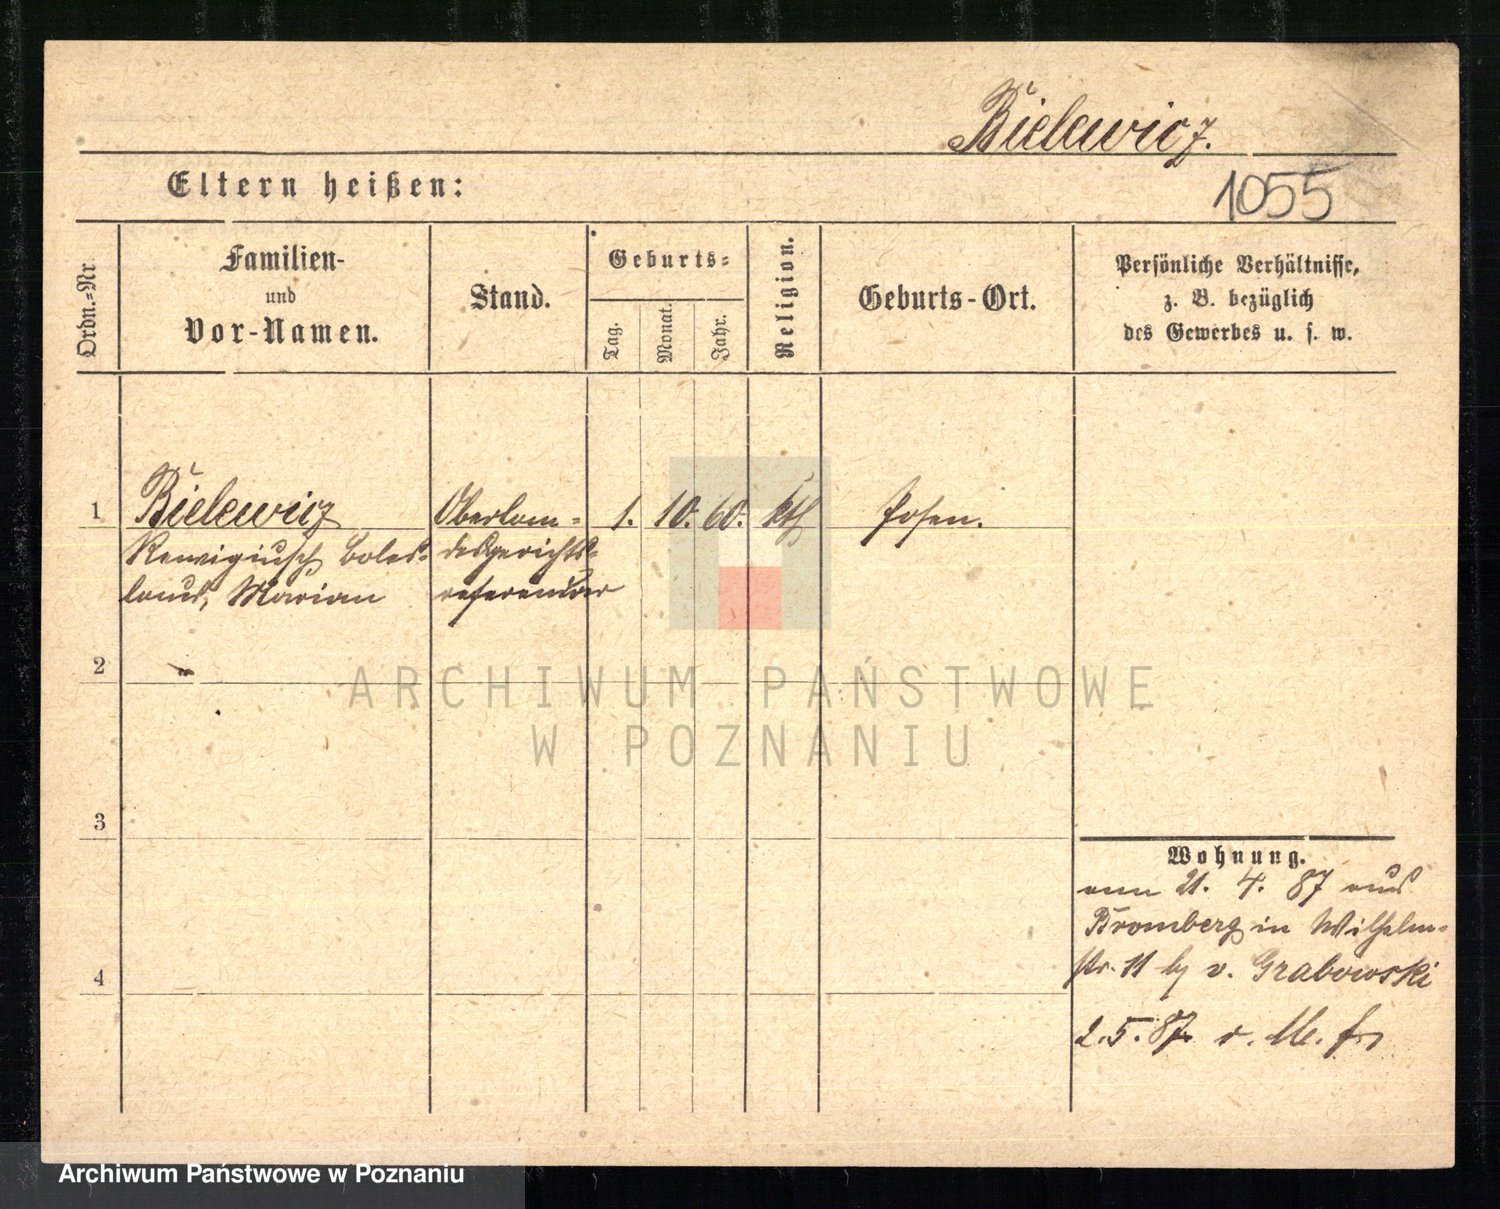 Bielewicz.
Eltern heißen:
1055
Ordn.=Nr.
Familien-
und
Vor-Namen.
Stand.
Geburts=
Tag.
Monat.
Jahr.
Religion.
Geburts-Ort.
Persönliche Verhältnisse,
z. B. bezüglich
des Gewerbes u. s. w.
1
Bielewicz
Oberlan=
1.
10.
60.
kth
Posen.
Remigiusch Boles-
desgerichts-
laus, Marian
referendar
2
ARCHIWUM PAŃSTWOWE
W POZNANIU
3
Wohnung.
21. 4. 87 aus
Bromberg in Wilhelm-
4
str. 11 by v. Grabowski
2. 5. 87.
Archiwum Państwowe w Poznaniu